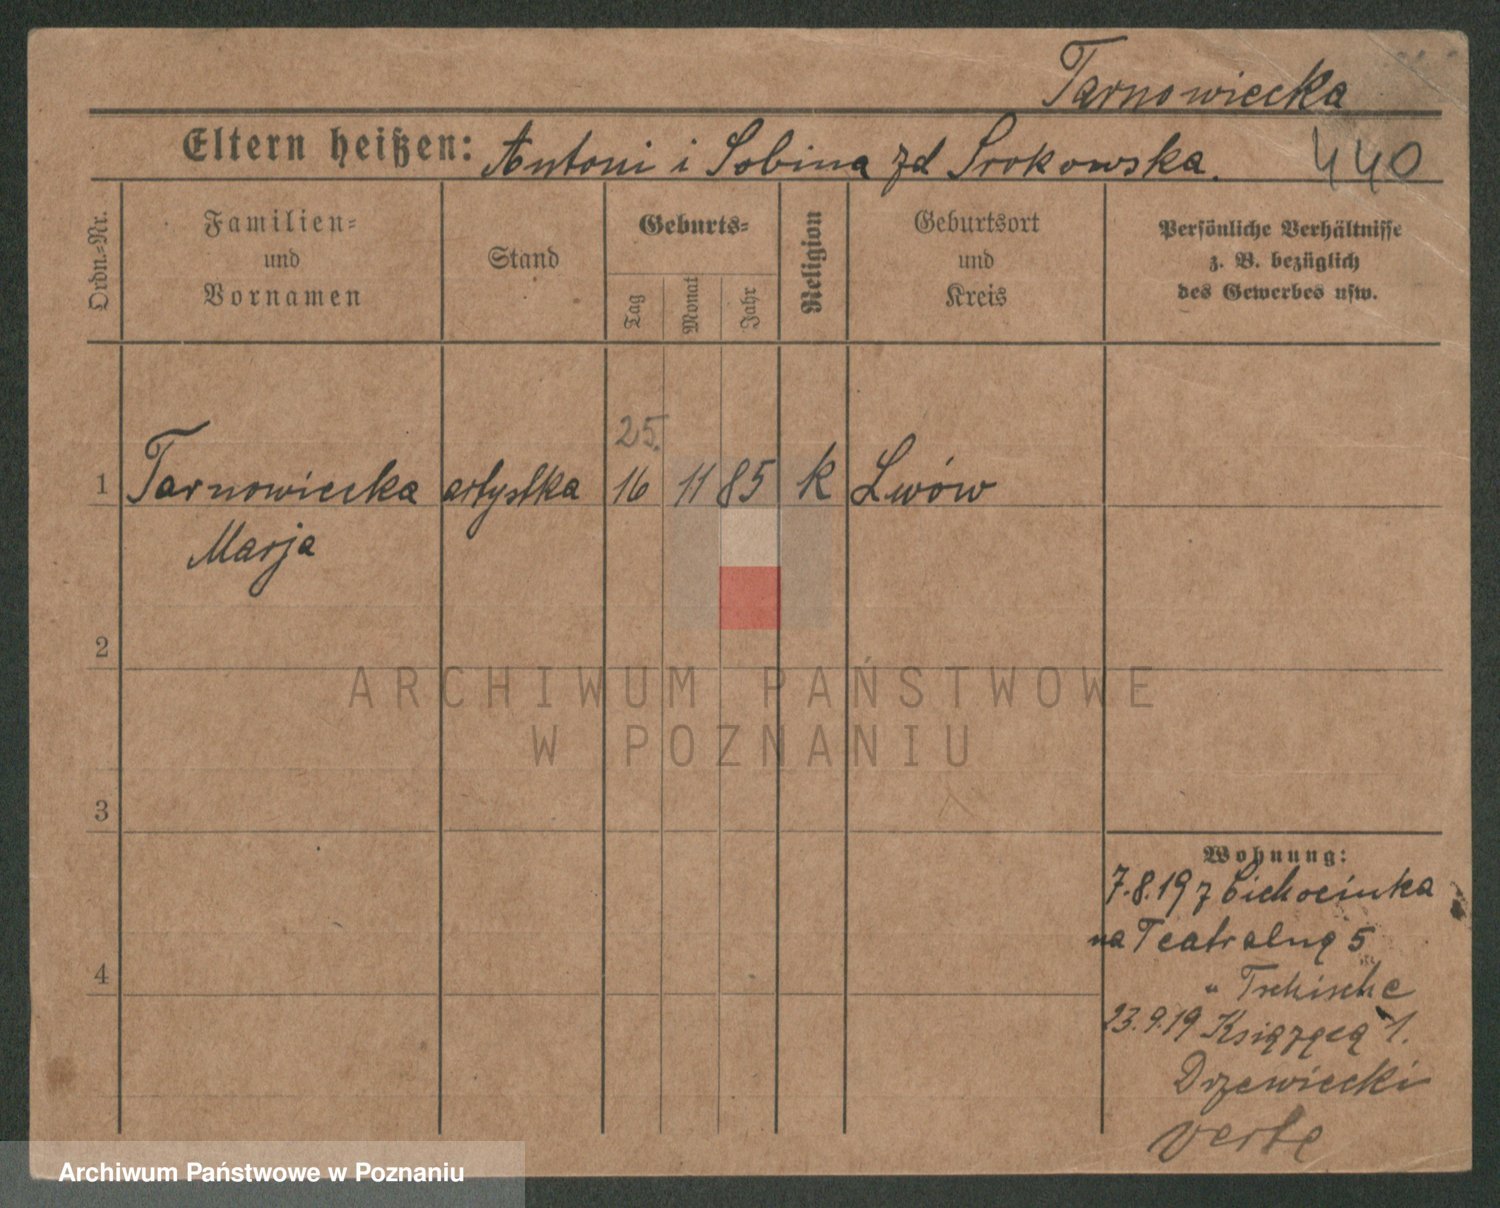 Tarnowiecka
Eltern heißen: Antoni i Sobina zd Srokowska.
440
Ordn.-Nr.
Familien-
und
Vornamen
Stand
Geburts-
Tag
Monat
Jahr
Religion
Geburtsort
und
Kreis
Persönliche Verhältnisse
z. B. bezüglich
des Gewerbes usw.
25.
1 Tarnowiecka artystka 16 11 85 k Lwów
Marja
2
ARCHIWUM PAŃSTWOWE
W POZNANIU
3
Wohnung:
7.8.19 z Cichocinka
na Teatralną 5
4
" Tschische
23.9.19 Książęcą 1.
Drzewiecki
verte
Archiwum Państwowe w Poznaniu